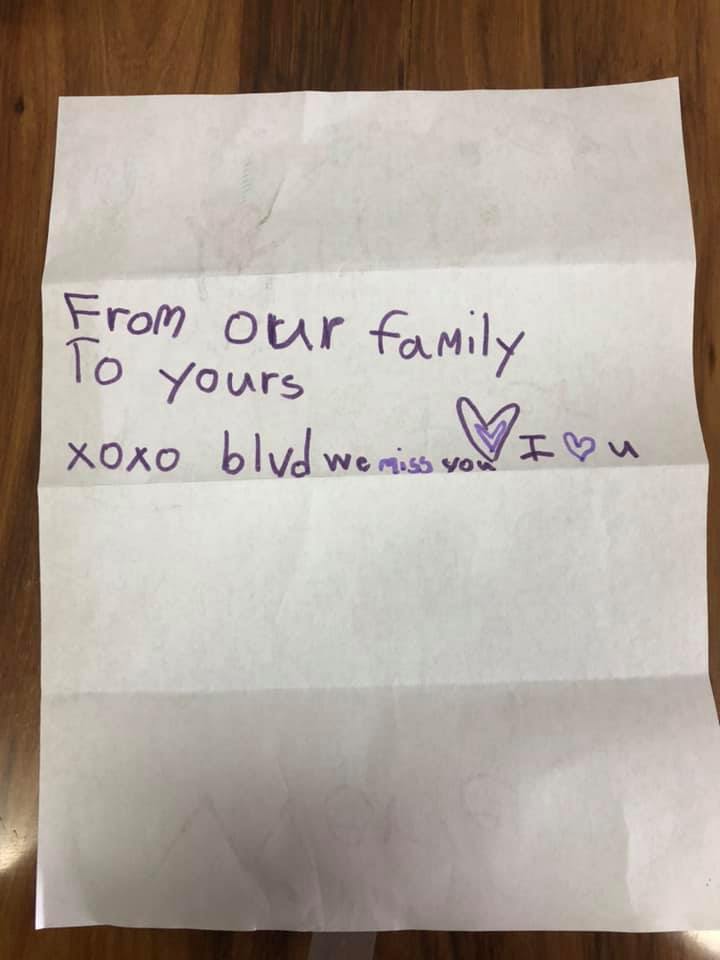 From our family
To yours
xoxo blvd we miss you I u